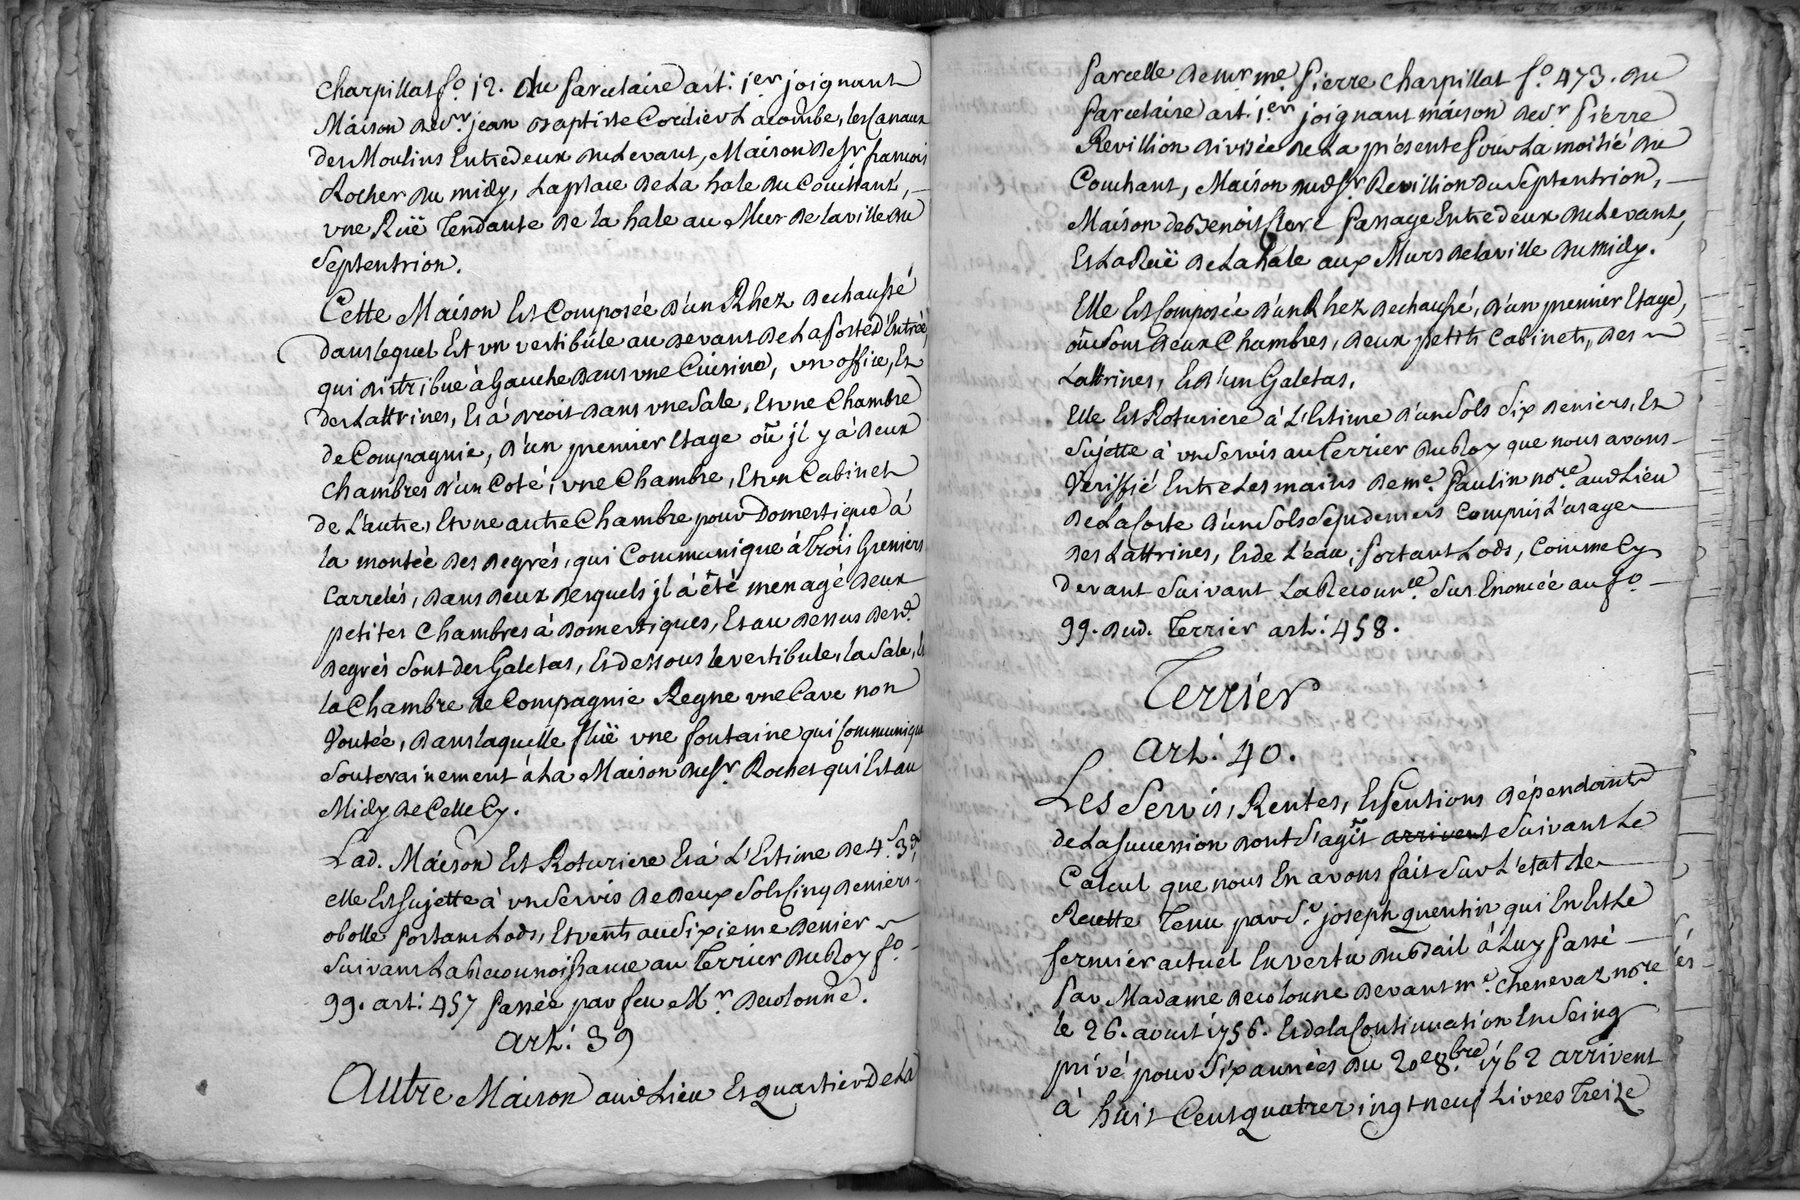 Charpillat fo. 12. du parcelaire art: 1er joignant
Maison de sr. jean Baptiste Cordier Lacombe, les Canaux
des Moulins Entredeux du Levant, Maison de sr. francois
Rocher du midy, la place de la hale du Couchant,
vne Ruë Tendante de la hale au Mur de la ville du
Septentrion.
Cette Maison Est Composée d'un Rhez de chaussé
dans lequel Est vn vestibule au devant de La porte d'Entrée,
qui distribue à Gauche dans vne Cuisine, vn office, Et
des Lattrines, Et à droit dans vne Sale, Et vne Chambre
de Compagnie, d'un premier Etage où jl y à deux
chambres d'un Coté, vne Chambre, Et vn Cabinet
de L'autre, Et vne autre Chambre pour Domestique à
la montée des degrés, qui Communique à Trois Greniers
Carrelés, dans deux desquels jl à été menagé deux
petites Chambres à domestiques, Et au dessus desd.
degrés sont des Galetas, Et dessous le vestibule, la Sale, Et
la Chambre de Compagnie Regne vne Cave non
Voutée, dans laquelle fluë vne fontaine qui Communique
Souterainement à La Maison du sr. Rocher qui Est au
Midy de Celle Cy.
Lad. Maison Est Roturiere Et à L'Estime de 4s. 3d.
elle Est Sujette à vn Servis de deux Sols Cinq deniers
obolle portant Lods, Et vents au Sixieme denier
Suivant La Reconnoissance au Terrier du Roy fo.
99. art: 457 passée par feu Mr. Decolonne.
Art: 39
Autre Maison aud. Lieu Et quartier de La
Parcelle de sr. me. Pierre Charpillat fo. 473. du
Parcelaire art: 1er joignant maison de sr Pierre
Revillion divisée de La présente pour La moitié du
Couchant, Maison dud. sr. Revillion du Septentrion,
Maison de Benoist Clerc passage Entredeux du Levant,
Et La Ruë de La hale aux Murs de la ville du midy.
Elle Est Composée d'un Rhez de chaussé, d'un premier Etage,
où sont deux Chambres, deux petits Cabinets, des
Lattrines, Et d'un Galetas.
Elle Est Roturiere à L'Estime d'un Sols Six deniers, Et
Sujette à vn Servis au Terrier du Roy que nous avons
Veriffié Entre Les mains de me. Paulin nore. aud. Lieu
de La Sorte d'un Sols Sept deniers Compris L'usage
des Lattrines, Et de L'eau, portant Lods, Comme Cy
devant Suivant La Reconnce. Sus Enoncée au fo.
99. dud. Terrier art: 458.
Terrier
Art: 40.
Les Servis, Rentes, Et pentions dépendants
de La Succession dont S'agit arrivent Suivant Le
Calcul que nous En avons fait Sur L'etat de
Recette Tenu par Sr. joseph quentin qui En Est Le
fermier actuel En vertu du Bail à Luy Passé
Par Madame Decolonne devant me. Chenevaz nore
le 26. aoust 1756. Et de la Continuation En Seing
privé pour Six années du 20e 8bre. 1762 arrivent
à huit Cent quatre vingt neuf Livres Treize